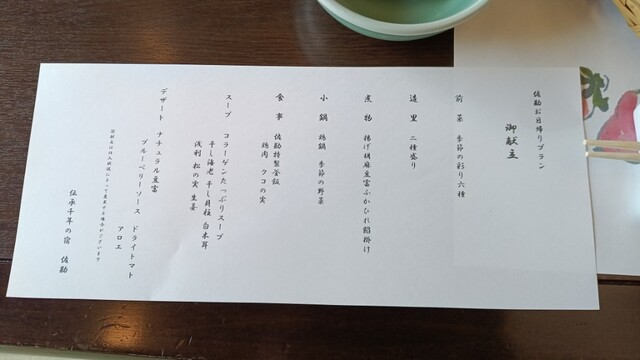 佐勘お日帰りプラン
御献立
前菜 季節の彩り六種
造里 二種盛り
煮物 揚げ胡麻豆富ふかひれ餡掛け
小鍋 鶏鍋 季節の野菜
食事 佐勘特製釜飯
鶏肉 クコの実
スープ コラーゲンたっぷりスープ
干し海老 干し貝柱 白木耳
浅利 松の実 生姜
デザート ナチュラル豆富
ブルーベリーソース ドライトマト
アロエ
伝承千年の宿 佐勘